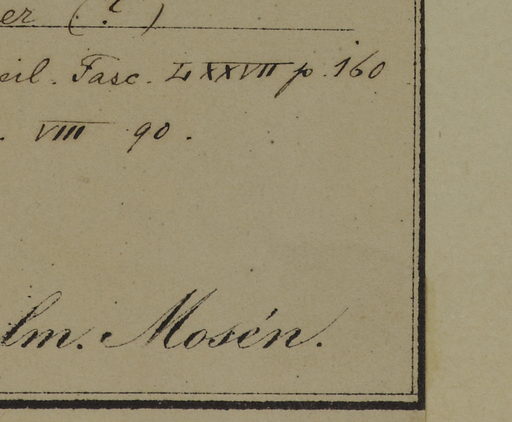 er (?)
eil. Fasc. LXXVII p. 160
. VIII 90.
lm. Mosén.